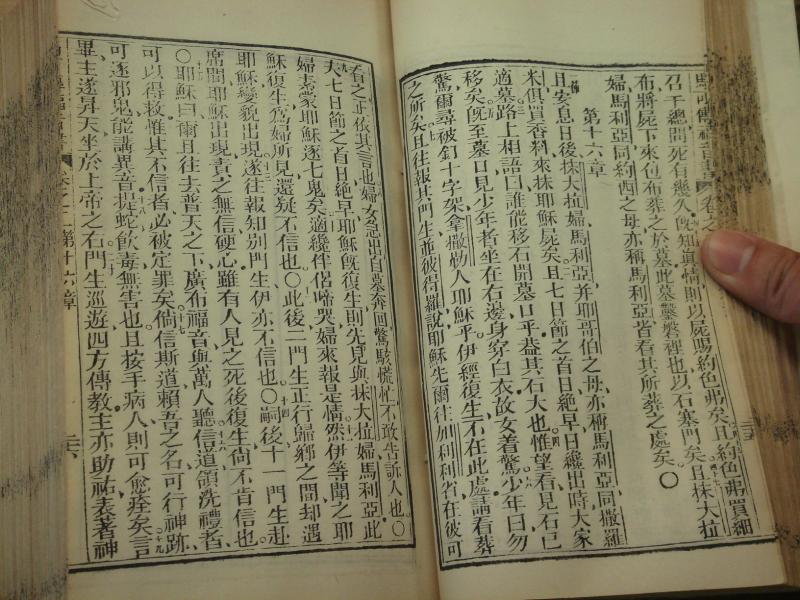 馬可傳福音書 卷之
召千總問死有幾久。旣知眞情則以屍賜約色弗矣且約色弗買細
布將屍下來包布葬之於墓此墓鑿磐裡也以石塞門矣且抹大拉
婦馬利亞同約西之母亦稱馬利亞省看其所葬之處矣○
第十六章
且安息日後抹大拉婦馬利亞并耶哥伯之母亦稱馬利亞同撒羅
米俱買香料來抹耶穌屍矣且七日節之首日絕早日纔出時大家
適墓路上相語曰誰能移石開墓口乎蓋其石大也惟望看見石已
移矣旣至墓口見少年者坐在右邊身穿白衣故女着驚少年曰勿
驚爾尋被釘十字架拿撒勒人耶穌乎伊經復生不在此處請看葬
之所矣且往報其門生並彼得羅說耶穌先爾往加利利省在彼可
看之正依其言也婦女急出自墓奔回驚駭慌忙不敢告訴人也○
夫七日節之首日絕早耶穌旣復生則先見與抹大拉婦馬利亞此
婦素蒙耶穌逐七鬼矣適纔伴侶啼哭婦來報是情然伊等聞之耶
穌復生爲婦所見還疑不信也○此後二門生正行歸鄉之間却遇
耶穌變貌出現遂往報知別門生伊亦不信也○嗣後十一門生赴
席間耶穌出現責之無信硬心雖有人見之死後復生尙不肯信也
○耶穌曰爾且往去普天之下廣布福音與萬人聽信道領洗禮者
可以得救惟其不信者必被定罪矣倘信斯道賴吾之名可行神跡
可逐邪鬼能講異音捉蛇飮毒無害也且按手病人則可愈痊矣言
畢主遂昇天坐於上帝之右門生巡遊四方傳教主亦助祐表著神
卷之二第十六章